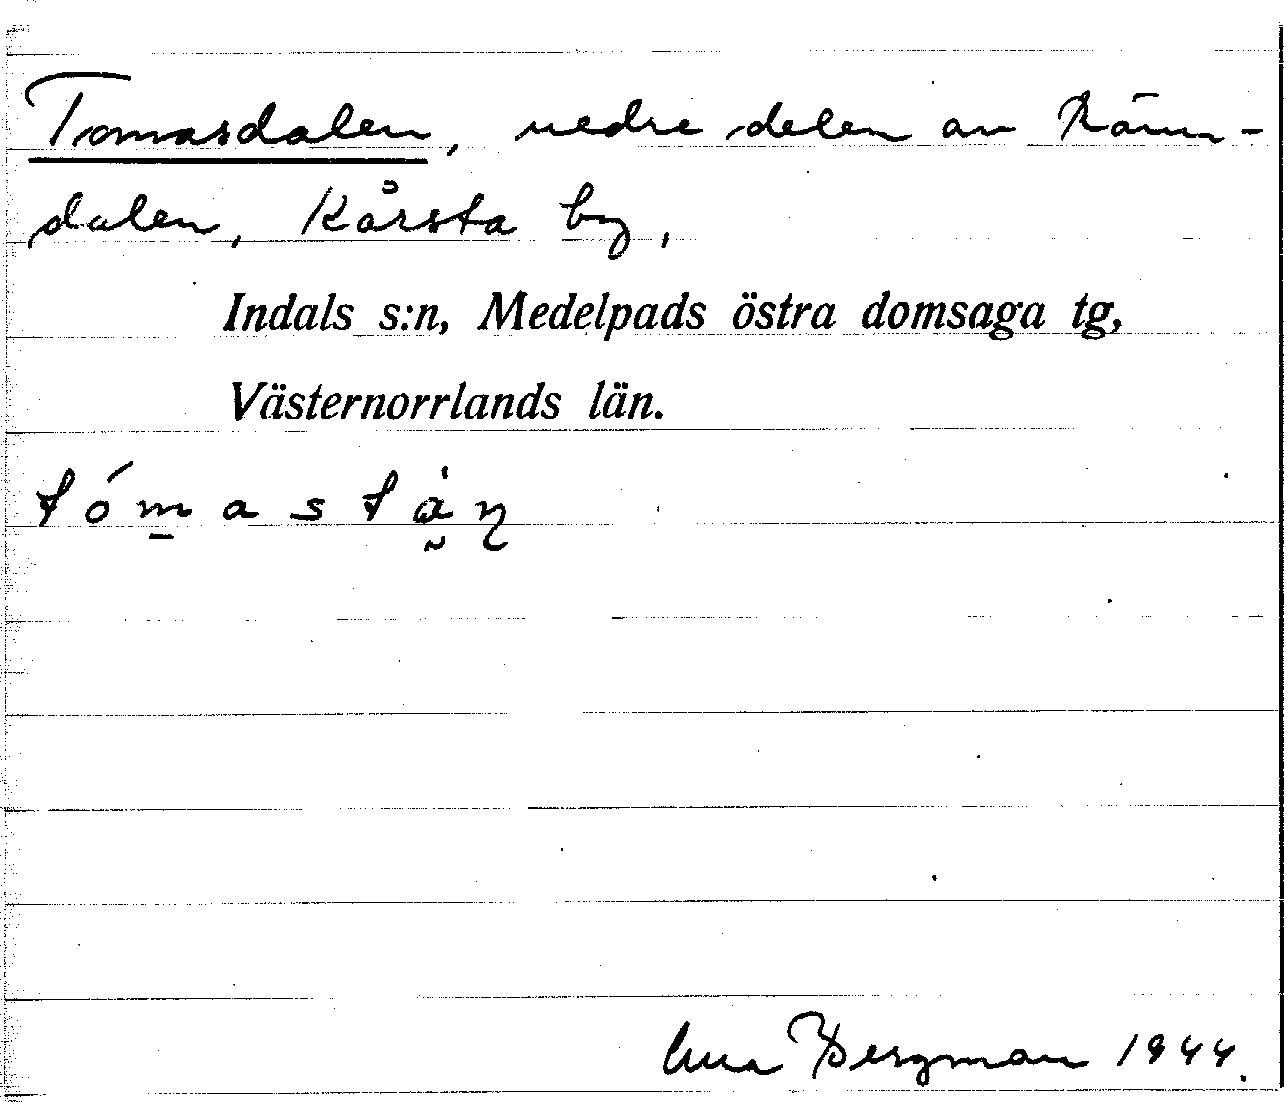 Tomasdalen, nedre delen avRänn-
dalen, Kårsta by,
Indals s:n, Medelpads östra domsaga tg,
Västernorrlands län.
Bergman 1944.